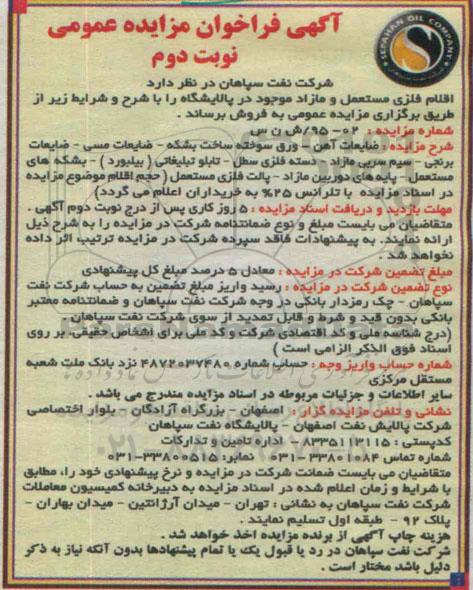 آگهی فراخوان مزایده عمومی
نوبت دوم
SEPAHAN OIL COMPANY
شرکت نفت سپاهان در نظر دارد
اقلام فلزی مستعمل و مازاد موجود در پالایشگاه را با شرح و شرایط زیر از
طریق برگزاری مزایده عمومی به فروش برساند .
شماره مزایده : ۰۲-۹۵/ش ن س
شرح مزایده : ضایعات آهن - ورق سوخته ساخت بشکه - ضایعات مسی - ضایعات
برنجی - سیم سربی مازاد - دسته فلزی سطل - تابلو تبلیغاتی ( بیلبورد ) - بشکه های
مستعمل - پایه های دوربین مازاد - پالت فلزی مستعمل ( حجم اقلام موضوع مزایده
در اسناد مزایده با تلرانس ۲۵% به خریداران اعلام می گردد)
مهلت بازدید و دریافت اسناد مزایده : ۵ روز کاری پس از درج نوبت دوم آگهی .
متقاضیان می بایست مبلغ و نوع ضمانتنامه شرکت در مزایده را به شرح ذیل
ارائه نمایند. به پیشنهادات فاقد سپرده شرکت در مزایده ترتیب اثر داده
نخواهد شد .
مبلغ تضمین شرکت در مزایده : معادل ۵ درصد مبلغ کل پیشنهادی
نوع تضمین شرکت در مزایده : رسید واریز مبلغ تضمین به حساب شرکت نفت
سپاهان - چک رمزدار بانکی در وجه شرکت نفت سپاهان و ضمانتنامه معتبر
بانکی بدون قید و شرط و قابل تمدید از سوی شرکت نفت سپاهان .
(درج شناسه ملی و کد اقتصادی شرکت و کد ملی برای اشخاص حقیقی، بر روی
اسناد فوق الذکر الزامی است )
شماره حساب واریز وجه : حساب شماره ۴۸۷۲۰۳۷۴۸۰ نزد بانک ملت شعبه
مستقل مرکزی
سایر اطلاعات و جزئیات مربوطه در اسناد مزایده مندرج می باشد .
نشانی و تلفن مزایده گزار : اصفهان - بزرگراه آزادگان - بلوار اختصاصی
شرکت پالایش نفت اصفهان - پالایشگاه نفت سپاهان
کدپستی : ۸۳۳۵۱۱۳۱۱۵ - اداره تامین و تدارکات
شماره تماس ۳۳۸۰۱۰۸۴-۰۳۱ نمابر: ۳۳۸۰۰۵۱۵-۰۳۱
متقاضیان می بایست ضمانت شرکت در مزایده و نرخ پیشنهادی خود را، مطابق
با شرایط و زمان اعلام شده در اسناد مزایده به دبیرخانه کمیسیون معاملات
شرکت نفت سپاهان به نشانی : تهران - میدان آرژانتین - میدان بهاران -
پلاک ۹۲ - طبقه اول تسلیم نمایند .
هزینه چاپ آگهی از برنده مزایده اخذ خواهد شد .
شرکت نفت سپاهان در رد یا قبول یک یا تمام پیشنهادها بدون آنکه نیاز به ذکر
دلیل باشد مختار است .